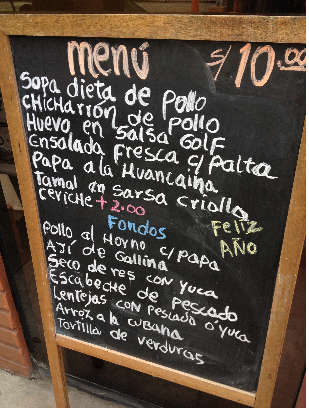 menú S/10.00
Sopa dieta de pollo
Chicharrón de pollo
Huevo en salsa Golf
Ensalada Fresca c/palta
Papa a la Huancaina
Tamal en sarsa criolla
Ceviche +2.00
Fondos
Feliz
Año
Pollo al Horno c/papa
Ají de Gallina
Seco de res con yuca
Escabeche de pescado
Lentejas con pescado o yuca
Arroz a la cubana
Tortilla de verduras